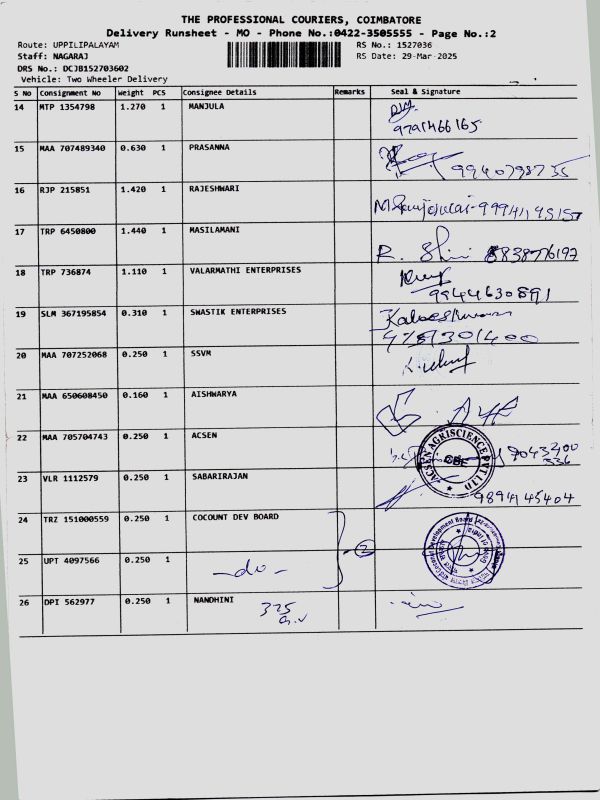 THE PROFESSIONAL COURIERS, COIMBATORE
Delivery Runsheet - MO - Phone No.:0422-3505555 - Page No.:2
Route: UPPILIPALAYAM RS No.: 1527036
Staff: NAGARAJ RS Date: 29-Mar-2025
DRS No.: DCJB152703602
Vehicle: Two Wheeler Delivery
S No Consignment No Weight PCS Consignee Details Remarks Seal & Signature
14 MTP 1354798 1.270 1 MANJULA
9791466165
15 MAA 707489340 0.630 1 PRASANNA
9940798735
16 RJP 215851 1.420 1 RAJESHWARI
17 TRP 6450800 1.440 1 MASILAMANI
R.
18 TRP 736874 1.110 1 VALARMATHI ENTERPRISES
9944630891
19 SLM 367195854 0.310 1 SWASTIK ENTERPRISES
20 MAA 707252068 0.250 1 SSVM
21 MAA 650608450 0.160 1 AISHWARYA
22 MAA 705704743 0.250 1 ACSEN
ACSEN AGRISCIENCE PVT LTD
CBE
23 VLR 1112579 0.250 1 SABARIRAJAN
9894145404
24 TRZ 151000559 0.250 1 COCOUNT DEV BOARD
2
25 UPT 4097566 0.250 1 -do-
26 DPI 562977 0.250 1 NANDHINI
325